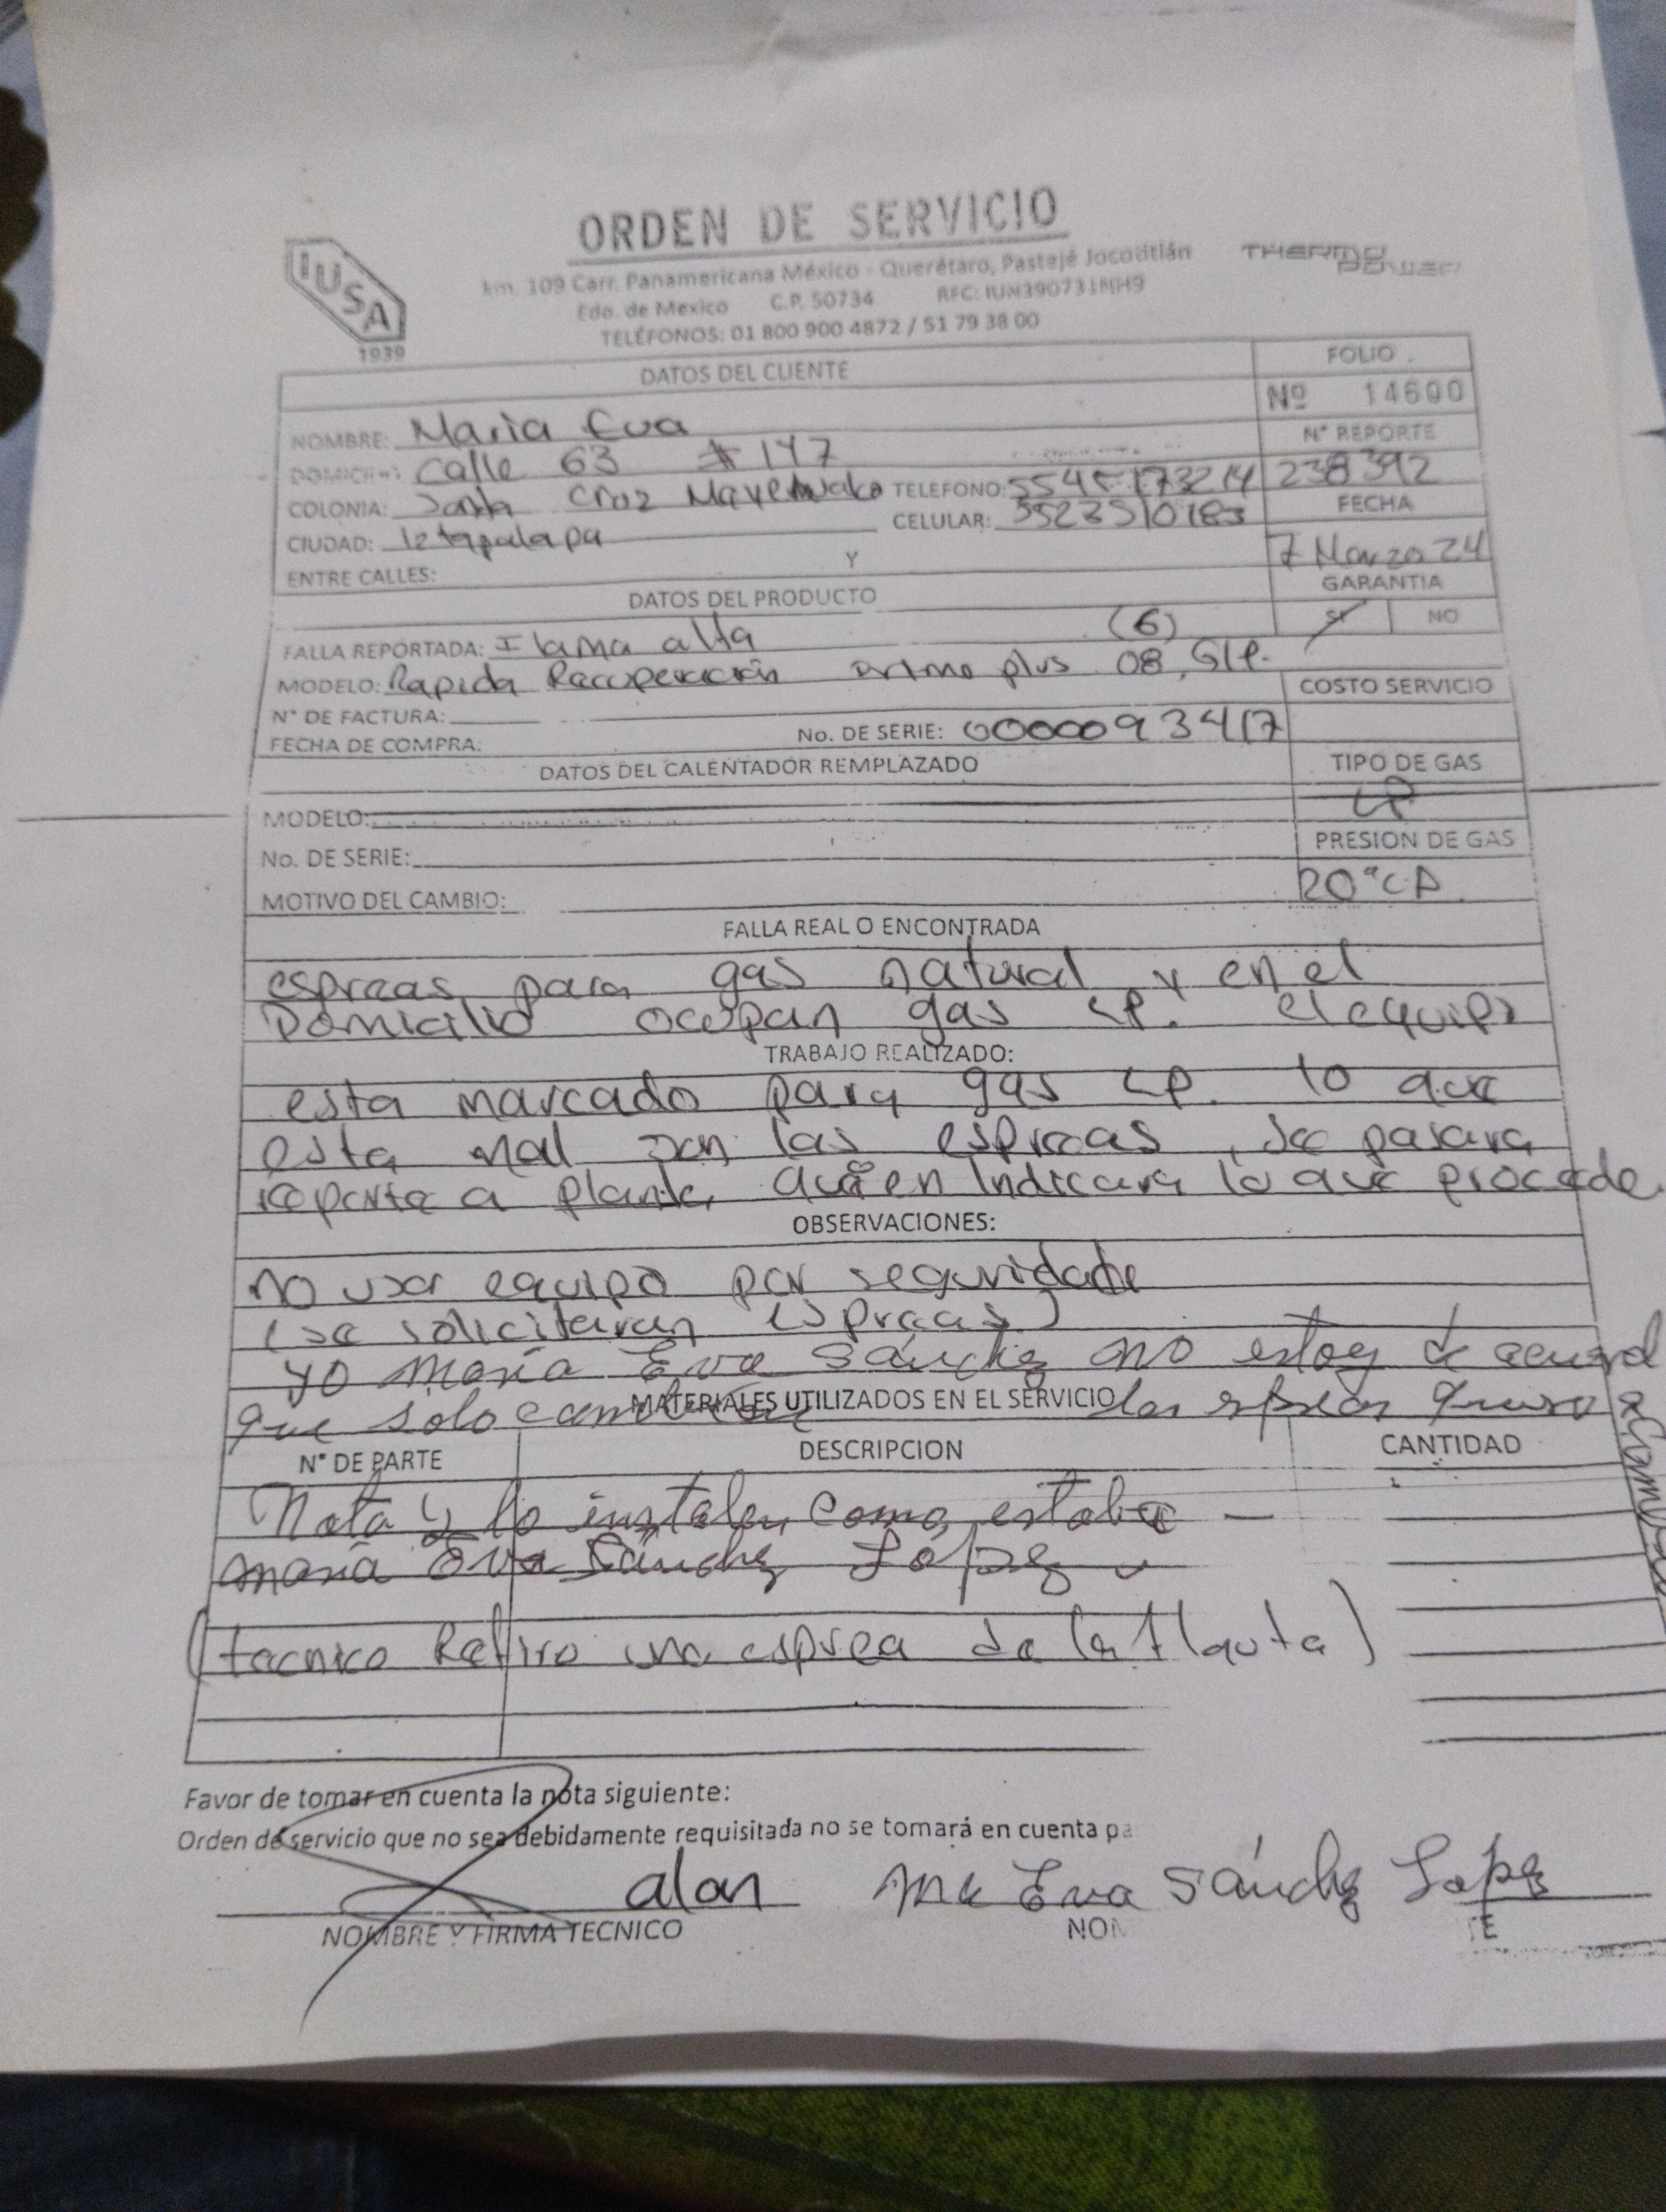 ORDEN DE SERVICIO
IUSA
1939
km. 109 Carr. Panamericana México - Querétaro, Pastejé Jocotitlán
THERMO POWER
Edo. de Mexico C.P. 50734 RFC: IUN390731NH9
TELÉFONOS: 01 800 900 4872 / 51 79 38 00
DATOS DEL CLIENTE
FOLIO
Nº 14600
NOMBRE: Maria Eva
Nº REPORTE
DOMICILIO: calle 63 # 147
238392
COLONIA: Santa Cruz TELEFONO:
FECHA
CIUDAD: Iztapalapa CELULAR: 5523510183
7 Marzo 24
ENTRE CALLES: Y
GARANTIA
DATOS DEL PRODUCTO
SI NO
FALLA REPORTADA: Flama alta (6)
MODELO: Rapida Recuperación plus 08, GLP.
COSTO SERVICIO
N° DE FACTURA:
FECHA DE COMPRA: No. DE SERIE: 0000093417
DATOS DEL CALENTADOR REMPLAZADO
TIPO DE GAS
LP
MODELO:
PRESION DE GAS
No. DE SERIE:
20"CA
MOTIVO DEL CAMBIO:
FALLA REAL O ENCONTRADA
espreas para gas natural y en el
Domicilio ocupan gas LP. el equipo
TRABAJO REALIZADO:
esta marcado para gas LP. lo que
esta mal son las espreas, se pasara
reporte a planta, quien Indicara lo que procede.
OBSERVACIONES:
no usar equipo por seguridad
(se solicitaran espreas)
yo María Eva Sánchez no estoy de acuerdo
que solo cambien las espreas quiero
MATERIALES UTILIZADOS EN EL SERVICIO
N° DE PARTE DESCRIPCION CANTIDAD
Nota y lo instalen como estaba —
María Eva Sánchez López
(tecnico Retiro una esprea de la flauta)
Favor de tomar en cuenta la nota siguiente:
Orden de servicio que no sea debidamente requisitada no se tomará en cuenta pa
alan Ma Eva Sánchez López
NOMBRE Y FIRMA TECNICO NOM TE